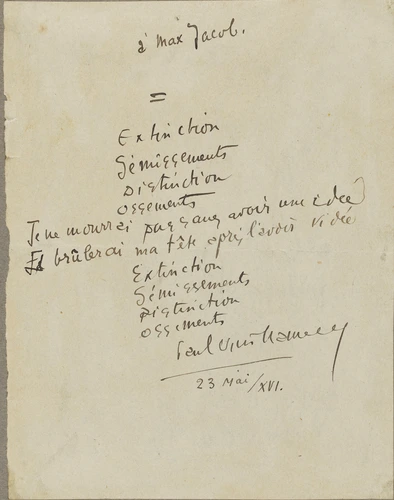 à Max Jacob.
=
Extinction
Gémissements
Distinction
Ossements
Je ne mourrai pas sans avoir une idée
Et brûlerai ma tête après l'avoir vidée
Extinction
Gémissements
Distinction
Ossements
Paul
23 Mai/XVI.